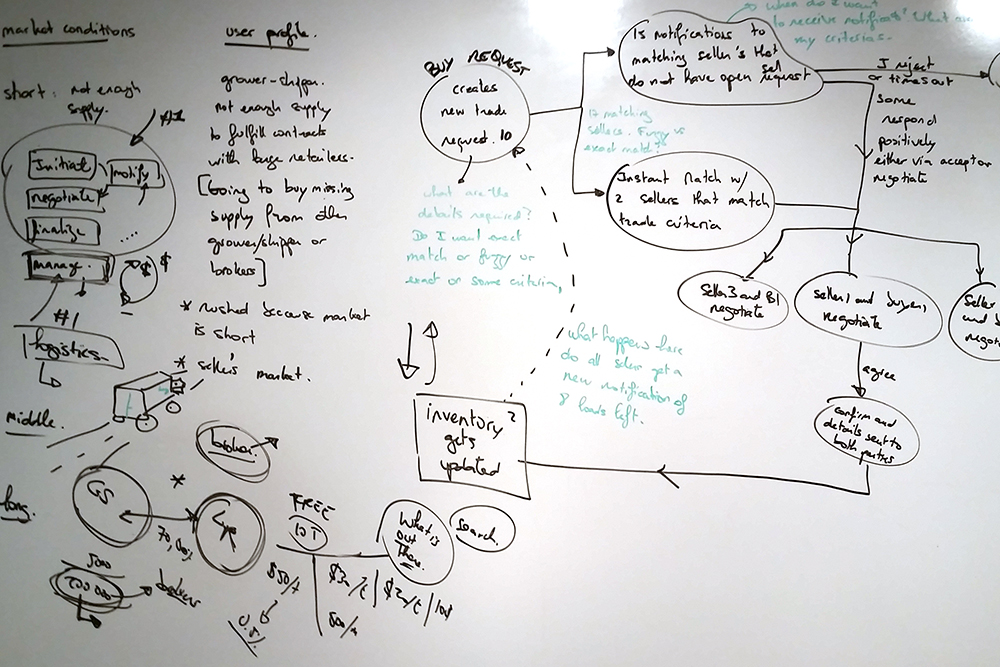 market conditions
short: not enough
supply.
#1
Initiate
notify!
negotiate
finalize
....
manage.
$ $
#1
logistics
middle.
long.
GS
5000
200 000
brokers
user profile.
grower-shipper.
not enough supply
to fulfill contracts
with huge retailers.
[Going to buy missing
supply from other
grower/shipper or
brokers]
* rushed because market
is short
* seller's market.
broker
*
FREE
10T
$50/t
$3m/t
$2m/t
500/
0.5%
What is
out
There.
search.
BUY REQUEST
creates
new trade
request. 10
what are the
details required?
Do I want exact
match or fuzzy or
exact on some criteria,
inventory 2
gets
updated
when do I want
to receive notificats? What are
my criterias.
15 notifications to
matching seller's that
do not have open sell
request
17 matching
sellers. Fuzzy vs
exact match?
Instant Match w/
2 sellers that match
trade criteria
I reject
or times out
Some
respond
positively
either via accept or
negotiate
Seller 3 and B1
negotiate
seller 1 and buyer 1
negotiate
Seller
and
negoti
agree
confirm and
details sent to
both parties
what happens here
do all sellers get a
new notification of
8 loads left.